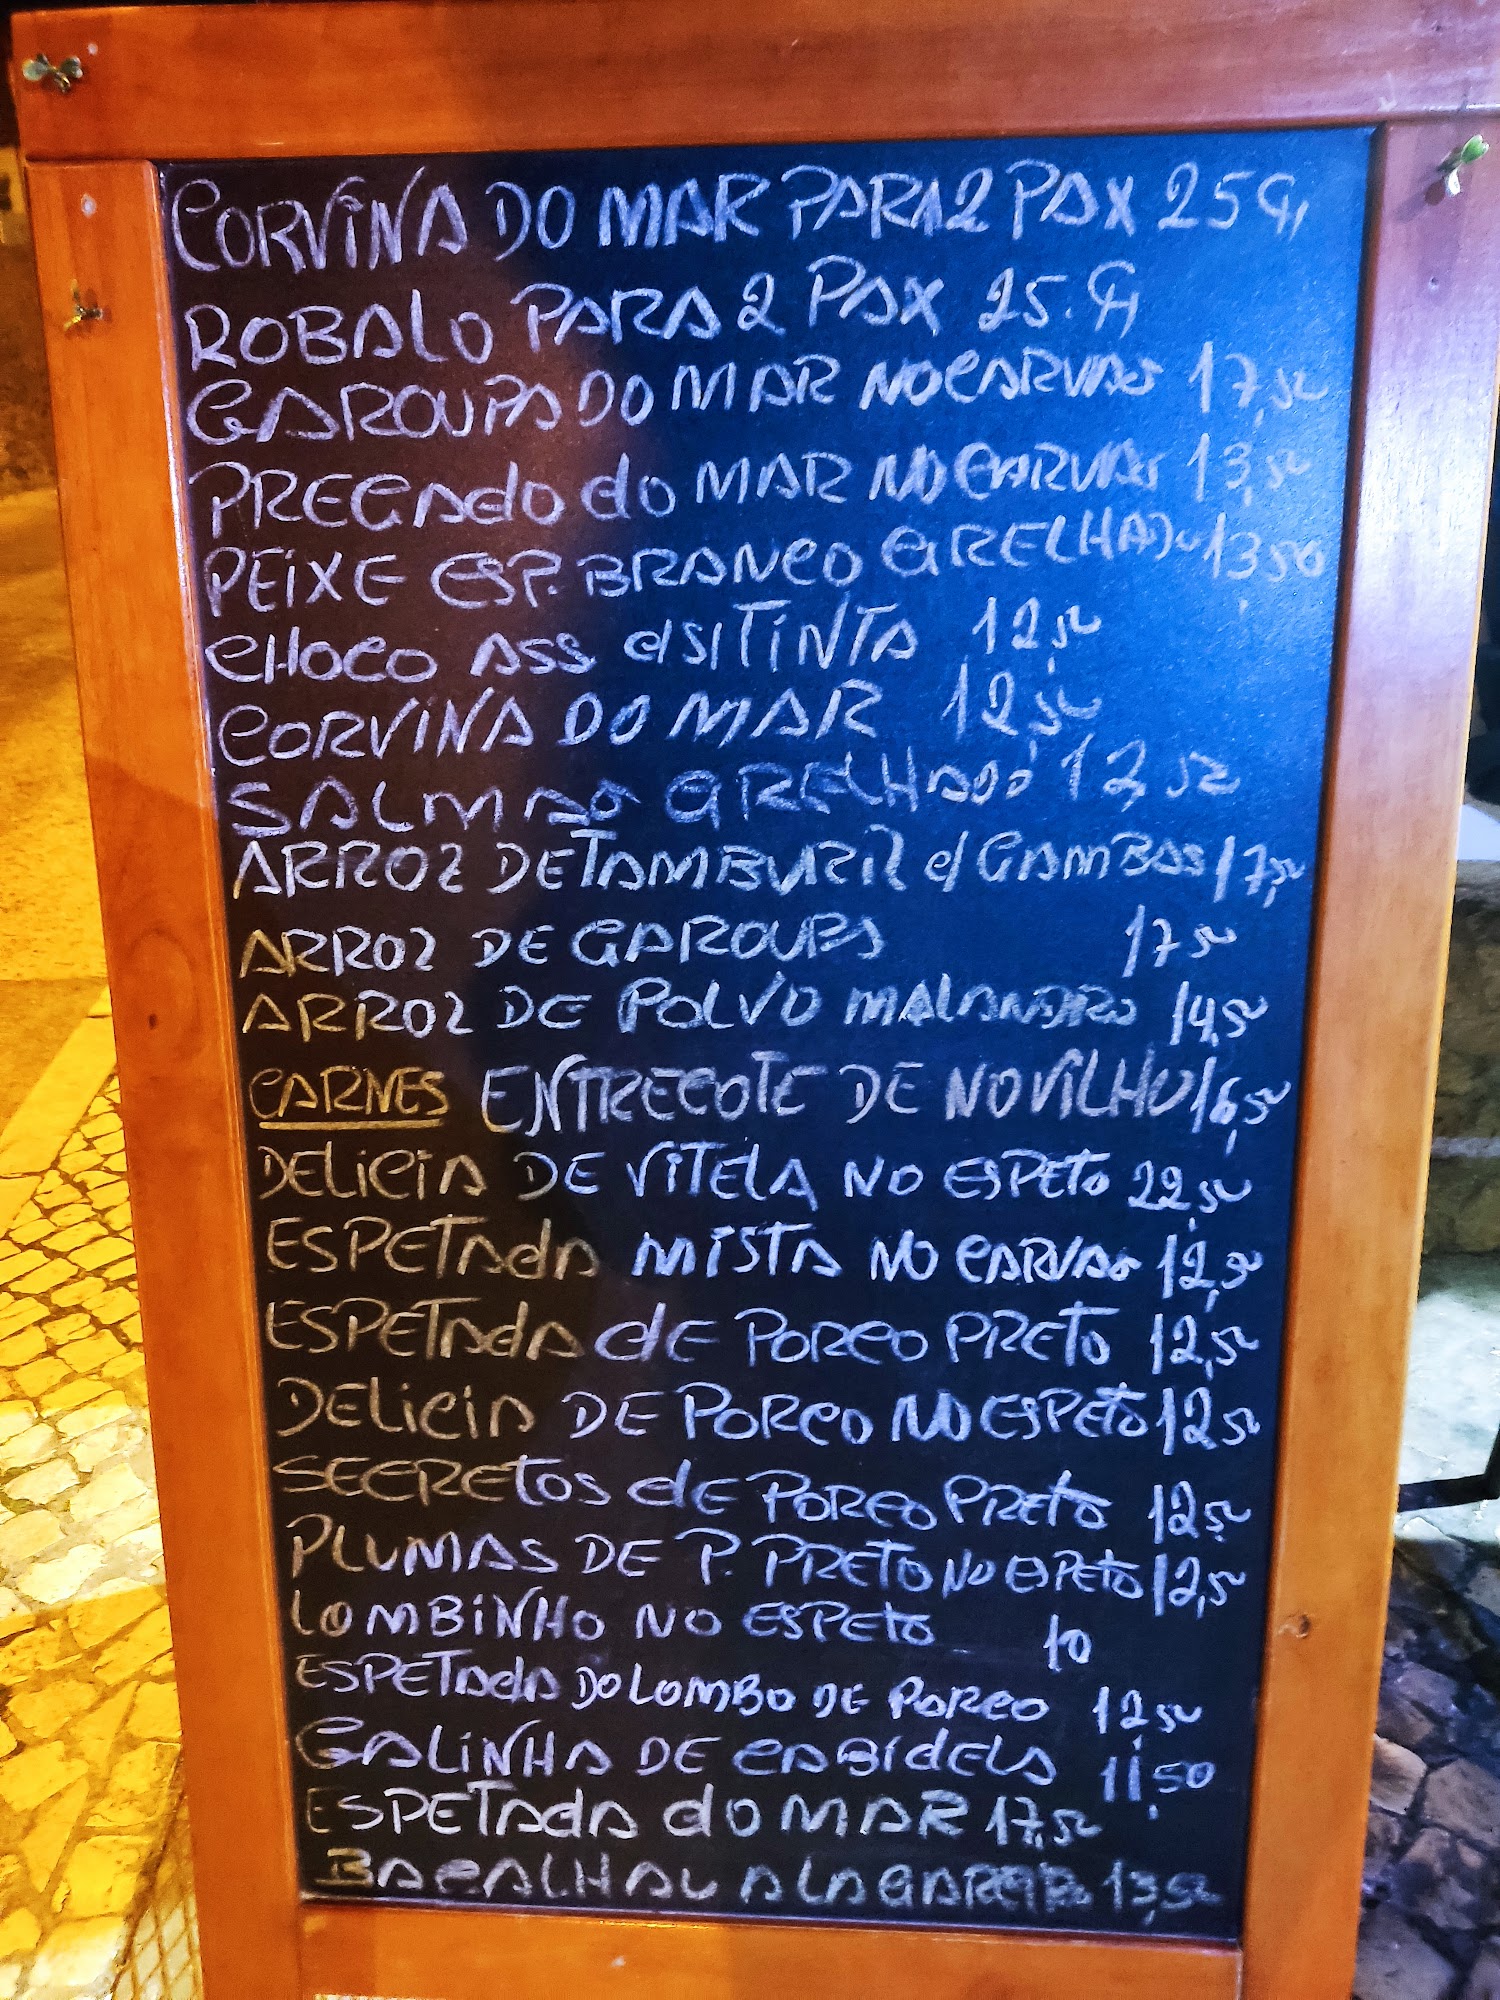 CORVINA DO MAR PARA 2 PAX 25 €,
ROBALO PARA 2 PAX 25. €,
GAROUPA DO MAR NO CARVÃO 17,50
PREGADO DO MAR NO CARVÃO 13,50
PEIXE ESP. BRANCO GRELHADO 13,50
CHOCO ASS C/S/TINTA 12,50
CORVINA DO MAR 12,50
SALMÃO GRELHADO 12,50
ARROZ DE TAMBURIL C/ GAMBAS 17,50
ARROZ DE GAROUPA 17,50
ARROZ DE POLVO MALANDRO 14,50
CARNES ENTRECOTE DE NOVILHO 16,50
DELICIA DE VITELA NO ESPETO 22,50
ESPETADA MISTA NO CARVÃO 12,50
ESPETADA DE PORCO PRETO 12,50
DELICIA DE PORCO NO ESPETO 12,50
SECRETOS DE PORCO PRETO 12,50
PLUMAS DE P. PRETO NO ESPETO 12,50
LOMBINHO NO ESPETO 10
ESPETADA DO LOMBO DE PORCO 12,50
GALINHA DE CABIDELA 11,50
ESPETADA DO MAR 17,50
BACALHAU A LAGAREIRO 13,50